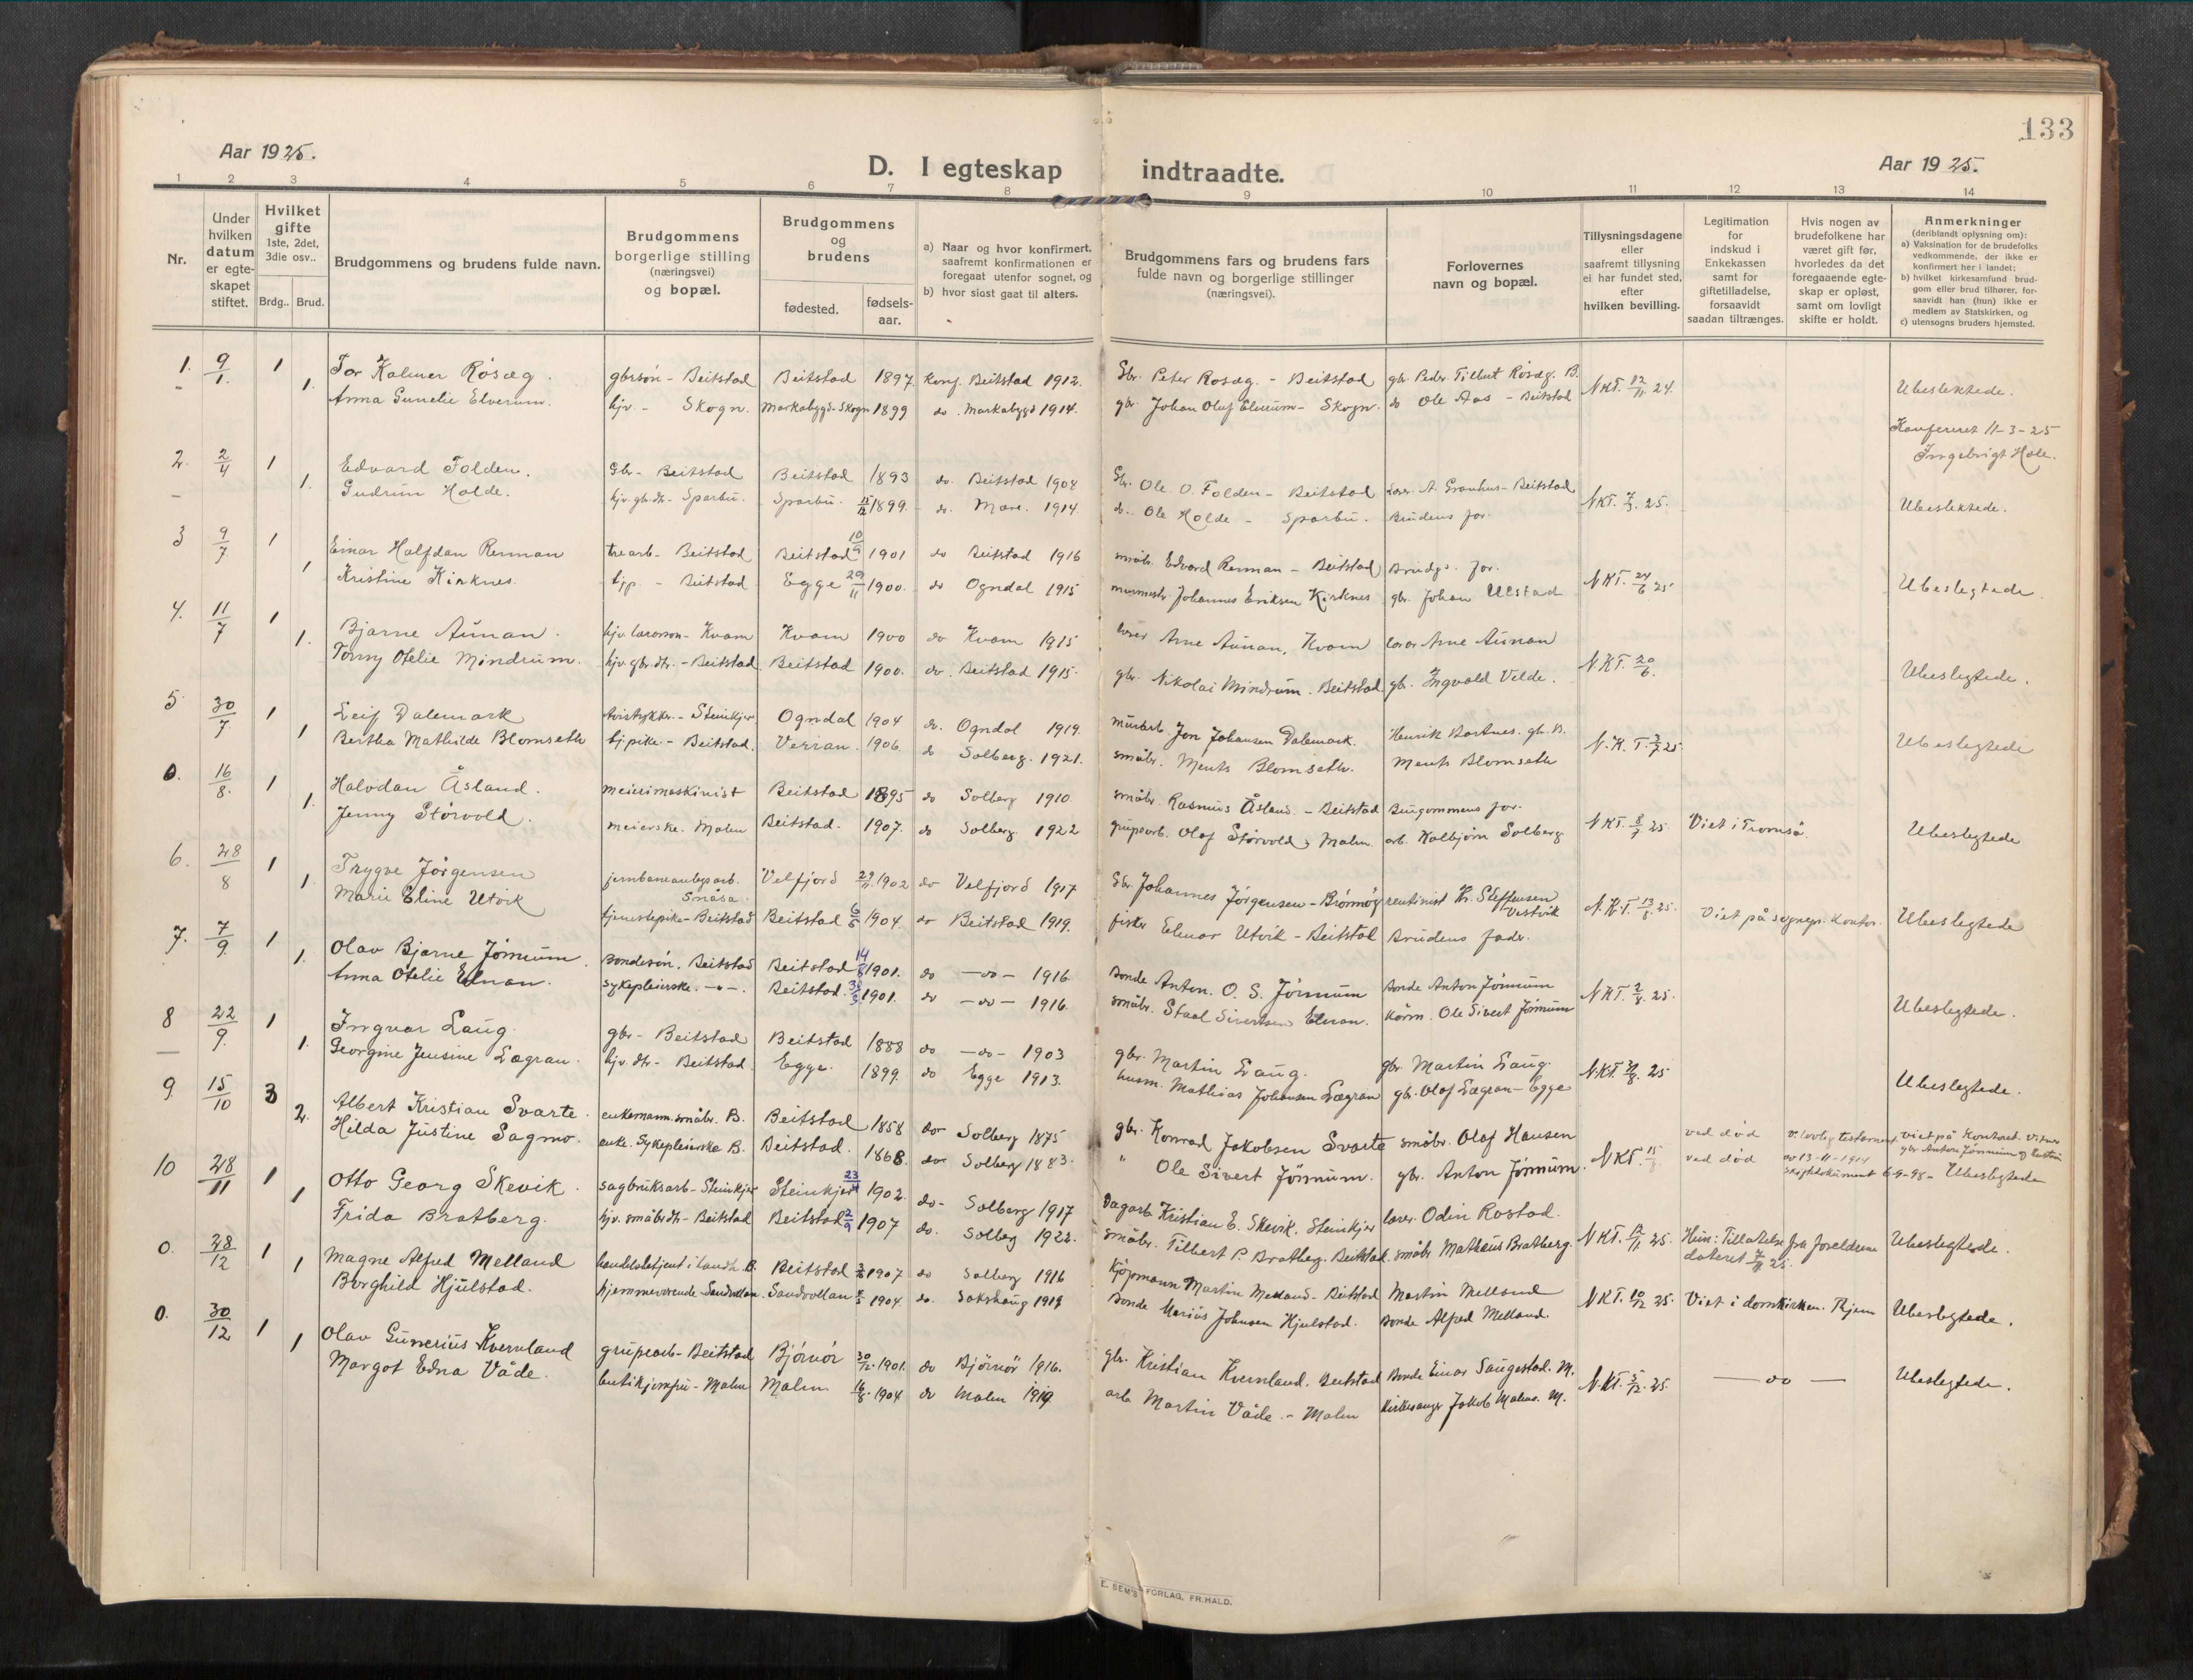 133
Aar 1925.
D. I egteskap indtraadte.
Aar 1925.
1 2 3 4 5 6 7 8 9 10 11 12 13 14
Nr.
Under hvilken datum er egteskapet stiftet.
Hvilket gifte 1ste, 2det, 3die osv..
Brdg.. Brud.
Brudgommens og brudens fulde navn.
Brudgommens borgerlige stilling (næringsvei) og bopæl.
Brudgommens og brudens
fødested. fødsels-aar.
a) Naar og hvor konfirmert. saafremt konfirmationen er foregaat utenfor sognet, og
b) hvor sidst gaat til alters.
Brudgommens fars og brudens fars fulde navn og borgerlige stillinger (næringsvei).
Forlovernes navn og bopæl.
Tillysningsdagene eller saafremt tillysning ei har fundet sted, efter hvilken bevilling.
Legitimation for indskud i Enkekassen samt for giftetilladelse, forsaavidt saadan tiltrænges.
Hvis nogen av brudefolkene har været gift før, hvorledes da det foregaaende egteskap er opløst, samt om lovligt skifte er holdt.
Anmerkninger (deriblandt oplysning om): a) Vaksination for de brudefolks vedkommende, der ikke er konfirmert her i landet; b) hvilket kirkesamfund brudgom eller brud tilhører, forsaavidt han (hun) ikke er medlem av Statskirken, og c) utensogns bruders hjemsted.
1. 9/1. 1 Tor Kalmer Rosæg. gbrsøn - Beitstad Beitstad 1897. konf. Beitstad 1912. Gbr. Peter Rosæg. - Beitstad gbr. Peder Tilbert Rosæg. B. NKT. 12/11 24. Ubeslektede.
1. Anna Gunelie Elverum. hjv. - Skogn. Markabygd-Skogn 1899 do. Markabygd 1914. gbr. Johan Oluf Elverum - Skogn. do Ole Aas - Beitstad
Konfereret 11-3-25
Ingebrigt Hole.
2. 2/4 1 Edvard Folden. Gbr - Beitstad Beitstad 1893 do. Beitstad 1908 Gbr. Ole O. Folden - Beitstad Lærer. A. Granhus - Beitstad NKT. 7/3. 25. Ubeslektede.
1. Gudrun Holde. hjv. gb.dtr. - Sparbu. Sparbu. 15/12 1899. do. Mære. 1914. do. Ole Holde - Sparbu. Brudens far.
3 9/7 1 Einar Halfdan Renman trearb - Beitstad Beitstad 10/9 1901 do Beitstad 1916 småbr. Edvard Renman - Beitstad Brudgs. far. NKT. 24/6 25 Ubeslegtede.
1 Kristine Kirknes. tjp. - Beitstad Egge 29/11 1900. do Ogndal 1915 murmestr. Johannes Eriksen Kirknes gbr. Johan Ulstad
4. 11/7 1 Bjarne Aunan. hjv. lærersøn - Kvam Kvam 1900 do Kvam 1915 lærer Arne Aunan, Kvam lærer Arne Aunan N.KT. 20/6. Ubeslegtede.
1. Tomy Otelie Mindrum. hjv. gbr.dtr. - Beitstad Beitstad 1900. do. Beitstad 1915. gbr. Nikolai Mindrum. Beitstad gb. Ingvald Velde.
5 30/7 1 Leif Dalemark Avistrykker. - Steinkjer Ogndal 1904 do. Ogndal 1919. murarb. Jon Johansen Dalemark. Henrik Bartnes. gb. B. N.K.T. 3/7 25 Ubeslegtede
1 Bertha Mathilde Blomseth tjpike. - Beitstad. Verran. 1906. do Solberg. 1921. småbr. Ments Blomseth. Ments Blomseth
0. 16/8. 1 Halvdan Åsland. meierimaskinist Beitstad 1895 do Solberg 1910 småbr. Rasmus Åsland. - Beitstad Brugommens far. NKT. 8/7 25. Viet i Tromsø. Ubeslegtede
1. Jenny Størvold. meierske. Malm Beitstad. 1907. do Solberg 1922 grupearb. Olaf Størvold, Malm. arb. Kolbjørn Solberg
6. 28/8 1 Trygve Jørgensen jernbaneanlegsarb. Snåsa Velfjord 29/11 1902 do Velfjord 1917 Gbr. Johannes Jørgensen - Brønnøy rentinist Kr. Steffensen Vestvik N.K.T. 13/8. 25. Viet på sognepr. kontor. Ubeslegtede
1. Marie Eline Utvik tjenestepike - Beitstad Beitstad 6/5 1904. do Beitstad 1919. fisker Elenor Utvik - Beitstad Brudens fader.
7. 7/9 1 Olav Bjarne Jønnum. Bondesøn. Beitstad Beitstad 14/8 1901. do - do - 1916. Bonde Anton. O. S. Jønnum Bonde Anton Jønnum NKT. 2/8. 25. Ubeslegtede.
1. Anna Otelie Elnan. sykepleierske. - " - Beitstad. 1901. do - do - 1916. småbr. Staal Sivertsen Elnan. Kårm. Ole Sivert Jønnum
8 22/9. 1 Ingvar Laug. gbr - Beitstad Beitstad 1888 do - do - 1903 gbr. Martin Laug. gbr. Martin Laug. NKT. 25 Ubeslegtede.
1. Georgine Jensine Lægran. hjv. dtr - Beitstad Egge. 1899. do Egge 1913. husm. Mathias Johansen Lægran gb. Olaf Lægran - Egge
9. 15/10 3 Albert Kristian Svarte. enkemann. småbr. B. Beitstad 1858 do Solberg 1875 gbr. Konrad Jakobsen Svarte småbr. Olaf Hansen NKT. 15/ ved død v. lovlig testament av 13-11-1914 viet på kontoret. Vitner gbr Anton Jønnum og
2. Hilda Justine Sagmo. enke. Sykepleierske B. Beitstad. 1868. do Solberg 1883. " Ole Sivert Jønnum. gbr. Anton Jønnum. ved død skiftdokument 6-9-98 - Ubeslegtede
10 28/11 1 Otto Georg Skevik. sagbruksarb - Steinkjer Steinkjer 1902. do - Solberg 1917 Dagarb. Kristian E. Skevik. Steinkjer lærer. Odin Rostad. NKT 12/11. 25. Hun: Tillatelse fra foreldrene dateret 25. Ubeslegtede.
1 Frida Bratberg. hjv. småbr.dtr - Beitstad Beitstad 2/9 1907 do. Solberg 1922. småbr. Tilbert P. Bratberg. Beitstad. småbr Mathæus Bratberg.
0. 28/12 1 Magne Alfred Melland handelsbetjent i landh. B. Beitstad 1907 do Solberg 1916 Kjøpmann Martin Melland - Beitstad Martin Melland NKT. 10/12 25. Viet i domkirken. Thjem Ubeslegtede.
1 Borghild Hjulstad. hjemmeværende - Sandvollan. Sandvollan 1904. do. Sakshaug 1919 Bonde Marius Johnsen Hjulstad. Bonde Alfred Melland.
0. 30/12 1 Olav Gunerius Kvernland grupearb - Beitstad Bjørnør 30/12. 1901. do Bjørnør 1916. gbr. Kristian Kvernland. Beitstad Bonde Einar Saugestad. M. N.KT. 5/12. 25. - do - Ubeslegtede.
1 Margot Edna Våde. butikjomfru - Malm Malm 16/8. 1904 do Malm 1919 arb Martin Våde. - Malm Kirkesanger Jakob Malmo. M.
E. SEM'S FORLAG, FR.HALD.